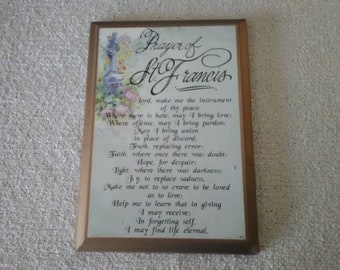 Prayer of
St Francis
Lord, make me the instrument
of thy peace,
Where there is hate, may I bring love;
Where offense, may I bring pardon;
May I bring union
in place of discord;
Truth, replacing error;
Faith, where once there was doubt;
Hope, for despair;
Light, where there was darkness;
Joy, to replace sadness,
Make me not to so crave to be loved
as to love;
Help me to learn that in giving
I may receive;
In forgetting self,
I may find life eternal.